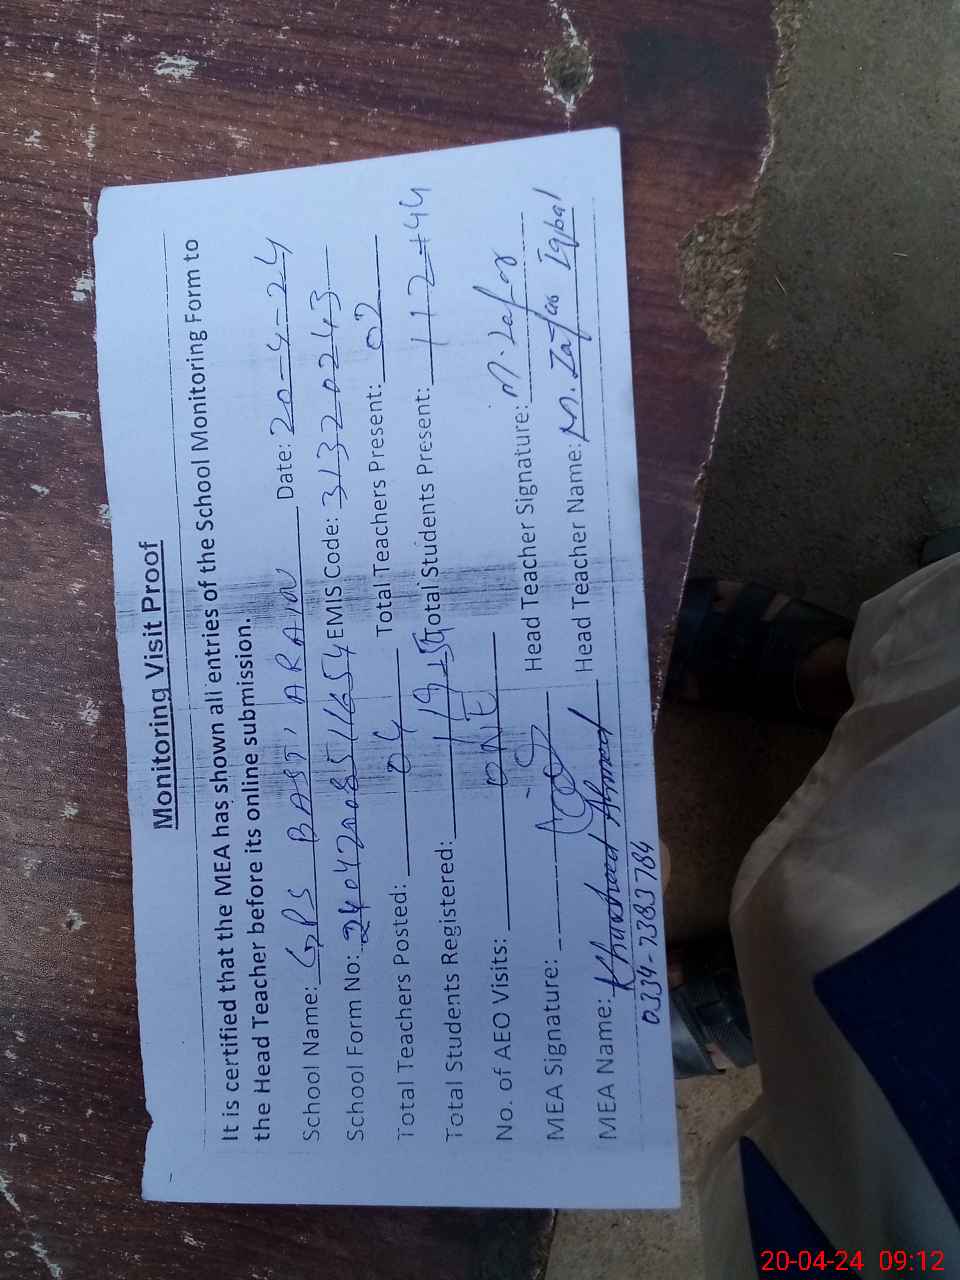 Monitoring Visit Proof
It is certified that the MEA has shown all entries of the School Monitoring Form to
the Head Teacher before its online submission.
School Name: GPS BASTI ARAIN Date: 20-4-24
School Form No: EMIS Code: 31320243
Total Teachers Posted: 04 Total Teachers Present: 02
Total Students Registered: Total Students Present: 112+44
No. of AEO Visits: ONE
MEA Signature: Head Teacher Signature: M. Zafar
MEA Name: Khursheed Ahmed Head Teacher Name: M. Zafar Iqbal
0334-7383784
20-04-24 09:12